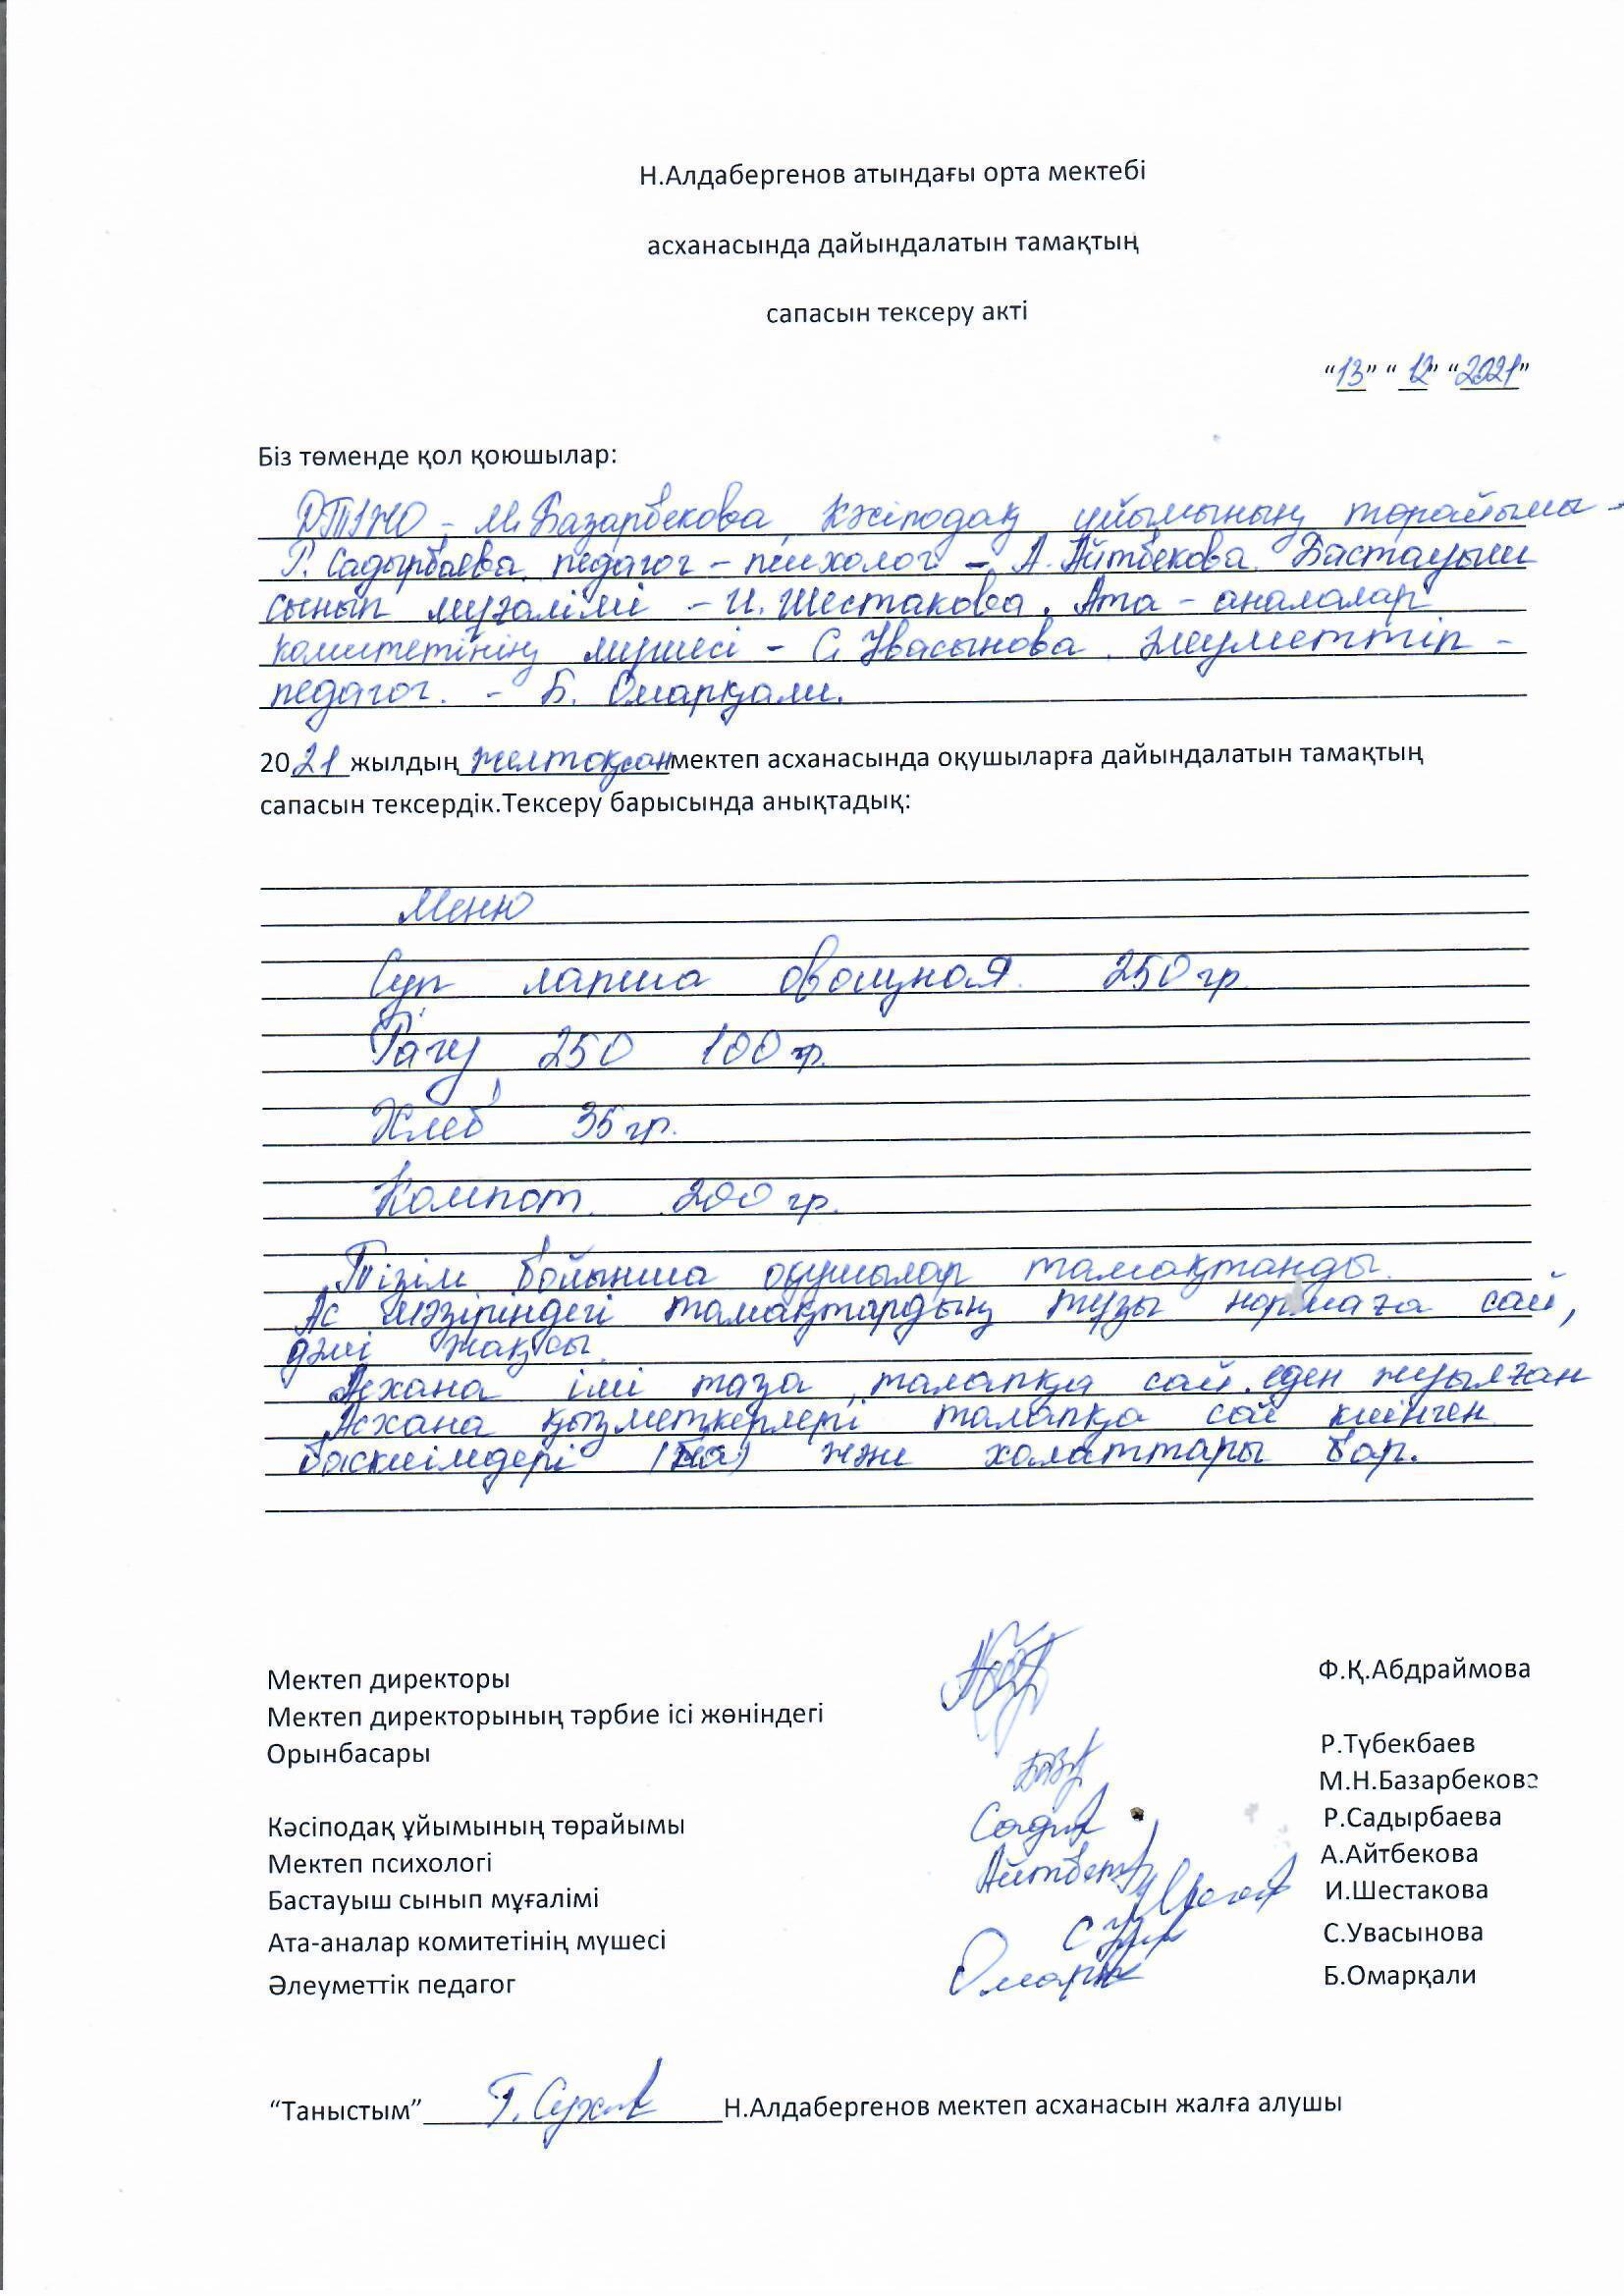 Н.Алдабергенов атындағы орта мектебі
асханасында дайындалатын тамақтың
сапасын тексеру акті
“13” “12” “2021”
Біз төменде қол қоюшылар:
М. Базарбекова, Кәсіподақ ұйымының төрайымы -
Р. Садырбаева, педагог - психолог - А. Айтбекова. Бастауыш
сынып мұғалімі - И. Шестакова. Ата - аналалар
комитетінің мүшесі - С. Увасынова. Әлеуметтік -
педагог. - Б. Омарқали.
2021 жылдың желтоқсан мектеп асханасында оқушыларға дайындалатын тамақтың
сапасын тексердік.Тексеру барысында анықтадық:
Меню
Суп лапша овощная 250 гр.
Рагу 250 100 гр.
Хлеб 35 гр.
Компот 200 гр.
Тізім бойынша оқушылар тамақтанды.
Ас мәзіріндегі тамақтардың тұзы нормаға сай,
дәмі жақсы.
Асхана іші таза, талапқа сай. еден жуылған
Асхана қызметкерлері талапқа сай киінген
баскиімдері және халаттары бар.
Мектеп директоры Ф.Қ.Абдраймова
Мектеп директорының тәрбие ісі жөніндегі
Орынбасары Р.Түбекбаев
М.Н.Базарбекова
Кәсіподақ ұйымының төрайымы Р.Садырбаева
Мектеп психологі А.Айтбекова
Бастауыш сынып мұғалімі И.Шестакова
Ата-аналар комитетінің мүшесі С.Увасынова
Әлеуметтік педагог Б.Омарқали
“Таныстым” Н.Алдабергенов мектеп асханасын жалға алушы